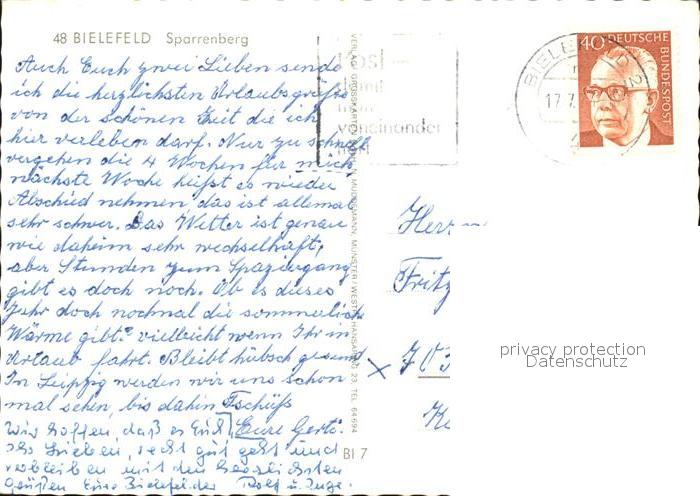 48 BIELEFELD Sparrenberg
Auch Euch zwei Lieben sende
ich die herzlichsten Urlaubsgrüße
von der schönen Zeit die ich
hier verleben darf. Nur zu schnell
vergehen die 4 Wochen für mich
nächste Woche heißt es wieder
Abschied nehmen das ist allemal
sehr schwer. Das Wetter ist genau
wie daheim sehr wechselhaft,
aber Stunden zum Spaziergang
gibt es doch noch. Ob es dieses
Jahr doch nochmal die sommerliche
Wärme gibt? vielleicht wenn Ihr in
Urlaub fahrt. Bleibt hübsch gesund
In Leipzig werden wir uns schon
mal sehen, bis dahin Tschüß
Eure Gerti.
Wir hoffen, daß es Euch
Lieben, recht gut geht und
verbleiben mit den herzlichsten
Grüßen Eure Bielefelder Rolf u. Inge.
BI 7
Post
damit
man
voneinander
hört
BIELEFELD 2
17.7.
40 DEUTSCHE
BUNDESPOST
Herr
Fritz
703
privacy protection
Datenschutz